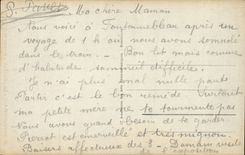 Ma chère Maman
Nous voici à Fontainebleau après un
voyage de 7 h où nous avons somnolé
dans le train. - Bon lit mais comme
d'habitude sommeil difficile.
Je n'ai plus mal nulle part
Partir c'est le bon remède Surtout
ma petite mère ne te tourmente pas
Nous avons quand besoin de te garder.
Pierrot est émerveillé et très mignon.
Baisers affectueux des 3 -